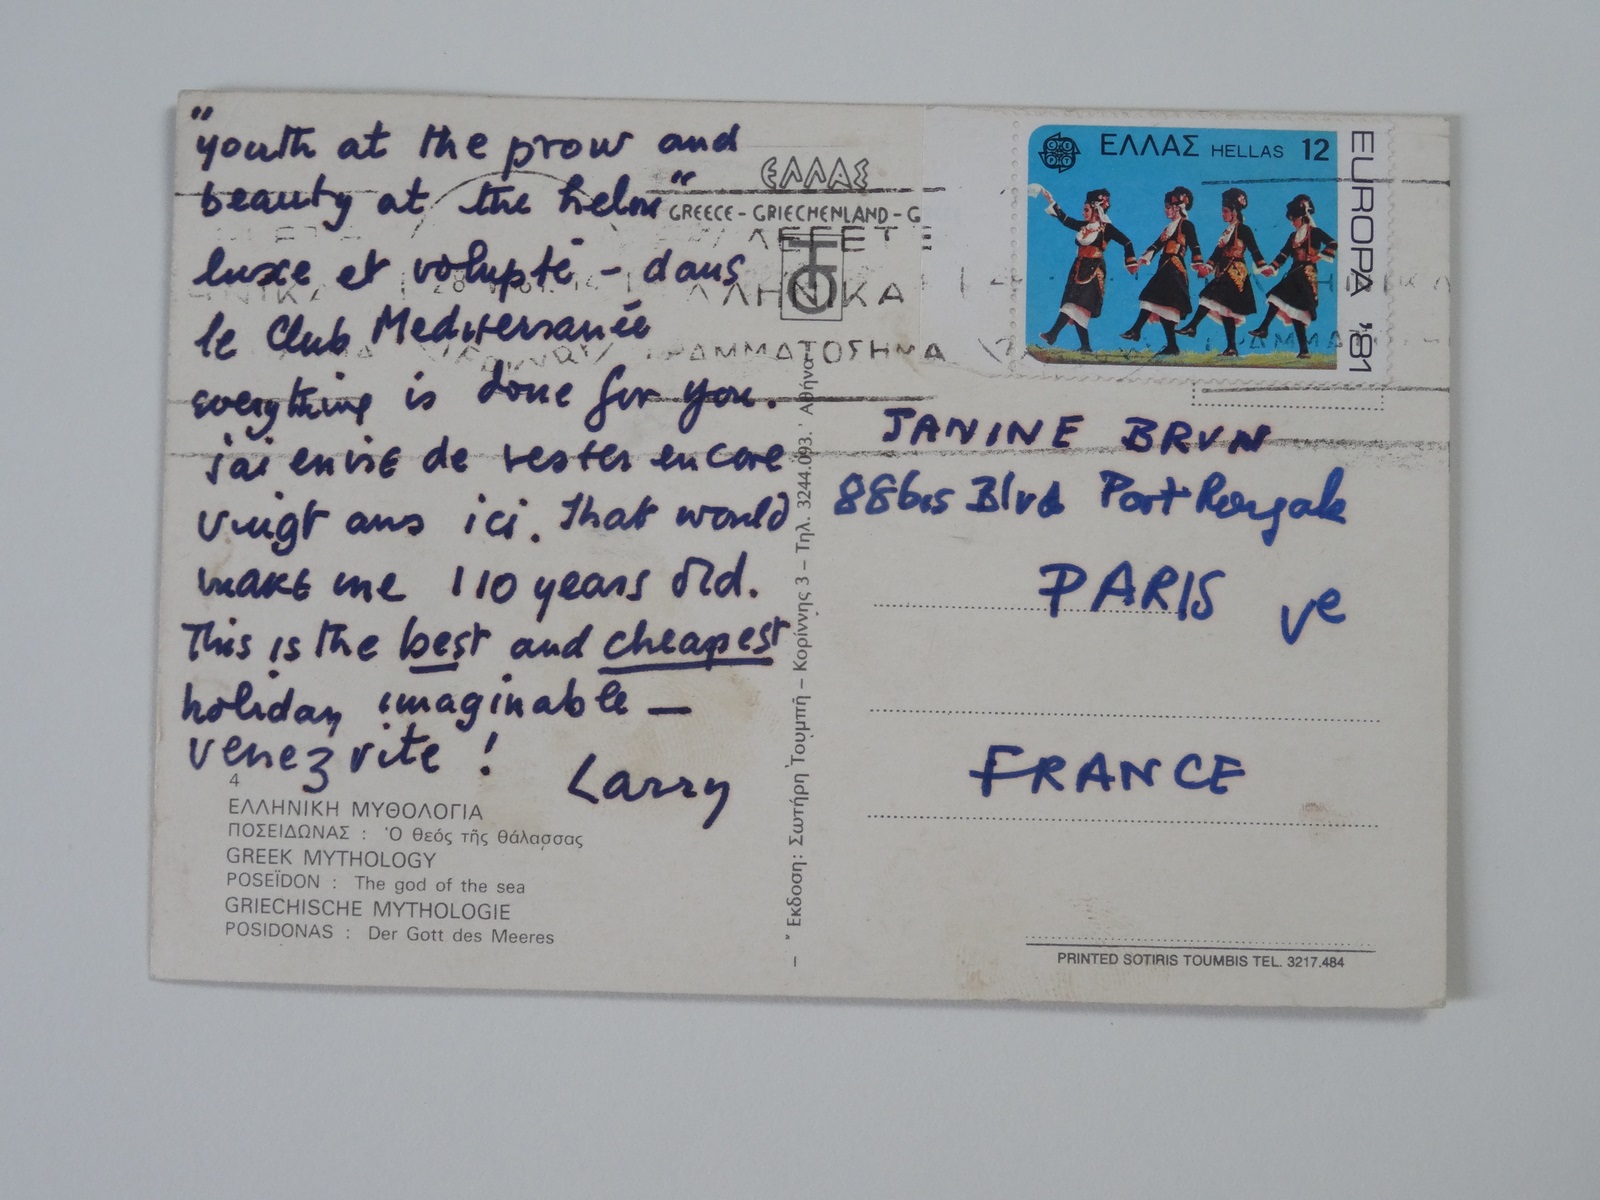 "youth at the prow and
beauty at the helm"
luxe et volupté - dans
le Club Mediterranée
everything is done for you.
j'ai envie de rester encore
vingt ans ici. That would
make me 110 years old.
This is the best and cheapest
holiday imaginable —
venez vite !
Larry
4
ΕΛΛΗΝΙΚΗ ΜΥΘΟΛΟΓΙΑ
ΠΟΣΕΙΔΩΝΑΣ : Ὁ θεός τῆς θάλασσας
GREEK MYTHOLOGY
POSEÏDON : The god of the sea
GRIECHISCHE MYTHOLOGIE
POSIDONAS : Der Gott des Meeres
ΕΛΛΑΣ
GREECE - GRIECHENLAND - G
ΛΕΓΕΤΕ
ΛΛΗΝΙΚΑ
ΓΡΑΜΜΑΤΟΣΗΜΑ
– Ἔκδοση: Σωτήρη Τουμπῆ – Κορίννης 3 – Τηλ. 3244.093. Ἀθήνα
ΕΛΛΑΣ HELLAS 12
EUROPA '81
JANINE BRUN
88bis Blvd Port Royale
PARIS Ve
FRANCE
PRINTED SOTIRIS TOUMBIS TEL. 3217.484